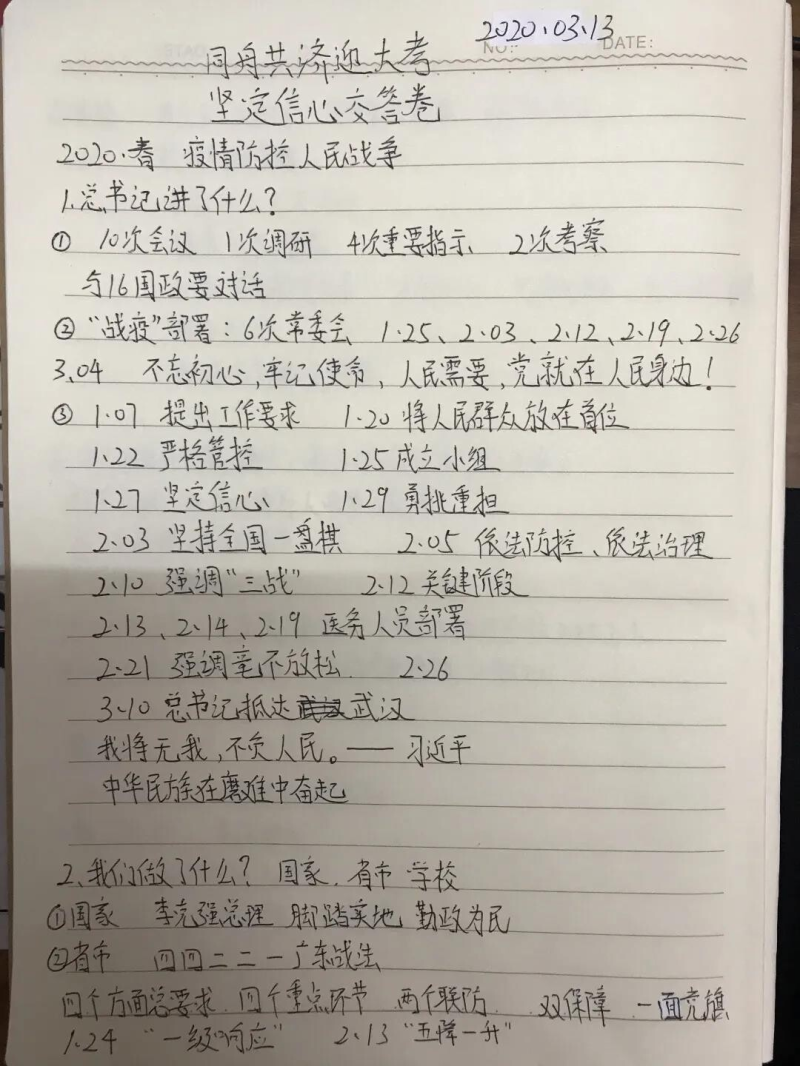 2020.03.13
NO: DATE:
同舟共济迎大考
坚定信心交答卷
2020.春 疫情防控人民战争
1.总书记讲了什么?
① 10次会议 1次调研 4次重要指示 2次考察
与16国政要对话
② “战疫”部署:6次常委会 1.25、2.03、2.12、2.19、2.26
3.04 不忘初心,牢记使命,人民需要,党就在人民身边!
③ 1.07 提出工作要求 1.20 将人民群众放在首位
1.22 严格管控 1.25 成立小组
1.27 坚定信心 1.29 勇挑重担
2.03 坚持全国一盘棋 2.05 依法防控、依法治理
2.10 强调“三战” 2.12 关键阶段
2.13、2.14、2.19 医务人员部署
2.21 强调毫不放松 2.26
3.10 总书记抵达武汉
我将无我,不负人民。——习近平
中华民族在磨难中奋起
2.我们做了什么? 国家、省市 学校
①国家 李克强总理 脚踏实地 勤政为民
②省市 四四二二一广东战法
四个方面总要求 四个重点环节 两个联防 双保障 一面党旗
1.24 “一级响应” 2.13 “五降一升”